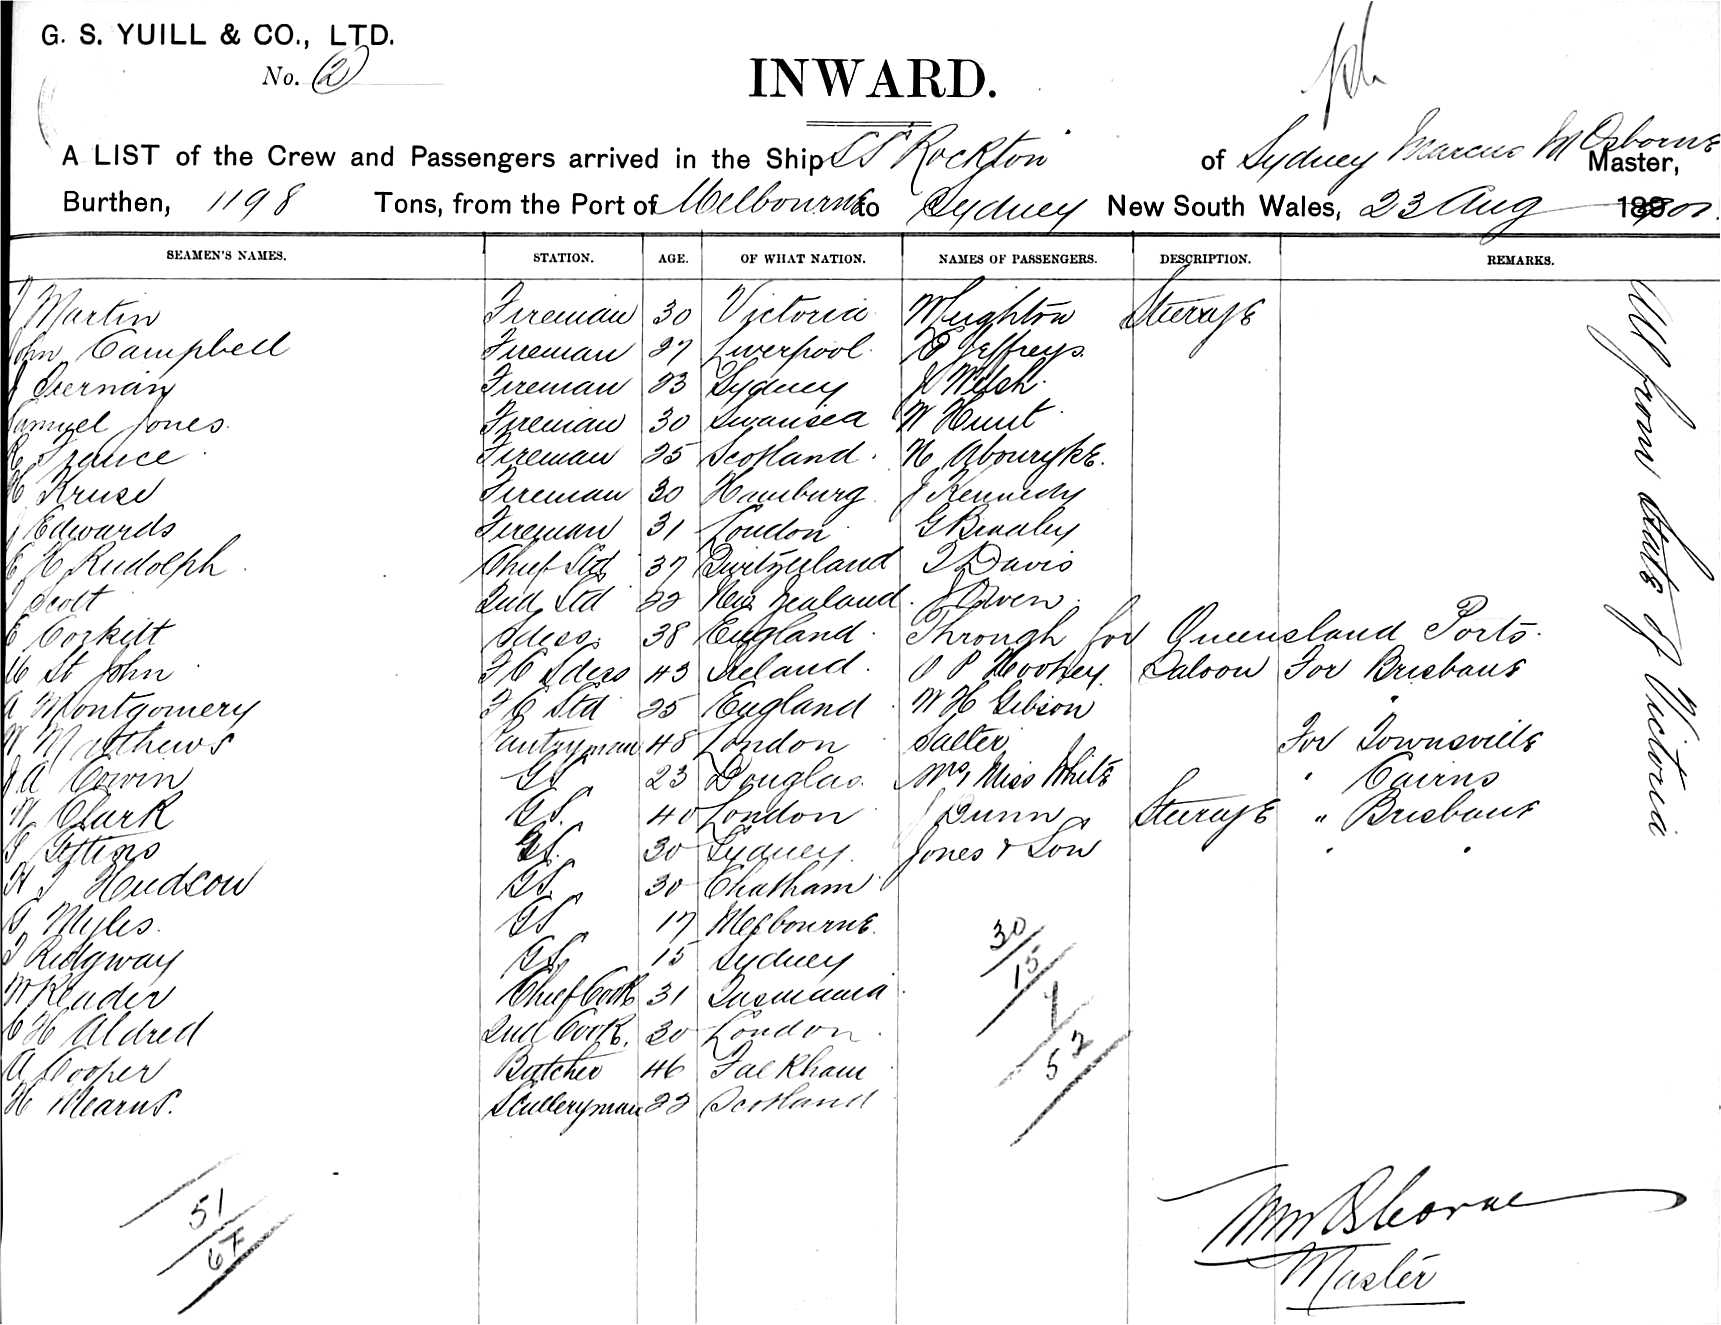 G. S. YUILL & CO., LTD.
No. (2)
INWARD.
A LIST of the Crew and Passengers arrived in the Ship SS Rockton of Sydney Marcus M Osborne Master,
Burthen, 1198 Tons, from the Port of Melbourne to Sydney New South Wales, 23 Aug 1901
SEAMEN'S NAMES. STATION. AGE. OF WHAT NATION. NAMES OF PASSENGERS. DESCRIPTION. REMARKS.
Martin Fireman 30 Victoria Steerage
John Campbell Fireman 27 Liverpool Jeffreys
Fireman 23 Sydney J Welsh
Samuel Jones Fireman 30 Swansea W Hunt
Fireman 25 Scotland
H Kruse Fireman 30 Hamburg J Kennedy
J Edwards Fireman 31 London G Bradley
E H Rudolph Chief Std 37 Switzerland T Davis
Scott 2nd Std 22 New Zealand J Owen
E Corkitt Stdess 38 England Through for Queensland Ports
St John F C Stdess 43 Ireland Saloon For Brisbane
A Montgomery F C Std 25 England W H Gibson "
W Matthews Pantryman 48 London Salter For Townsville
J A Cowin GS 23 Douglas Mrs, Miss White " Cairns
W Clark GS 40 London J Dunn Steerage " Brisbane
GS 30 Sydney Jones & Son " "
H J Hudson GS 30 Chatham
G Myles GS 17 Melbourne
T Ridgway GS 15 Sydney
W Chief Cook 31 Tasmania
C H Aldred 2nd Cook 30 London
A Cooper Butcher 46
H Mearns Sculleryman 22 Scotland
All from State of Victoria
30
15
7
52
51
67
M M Osborne
Master